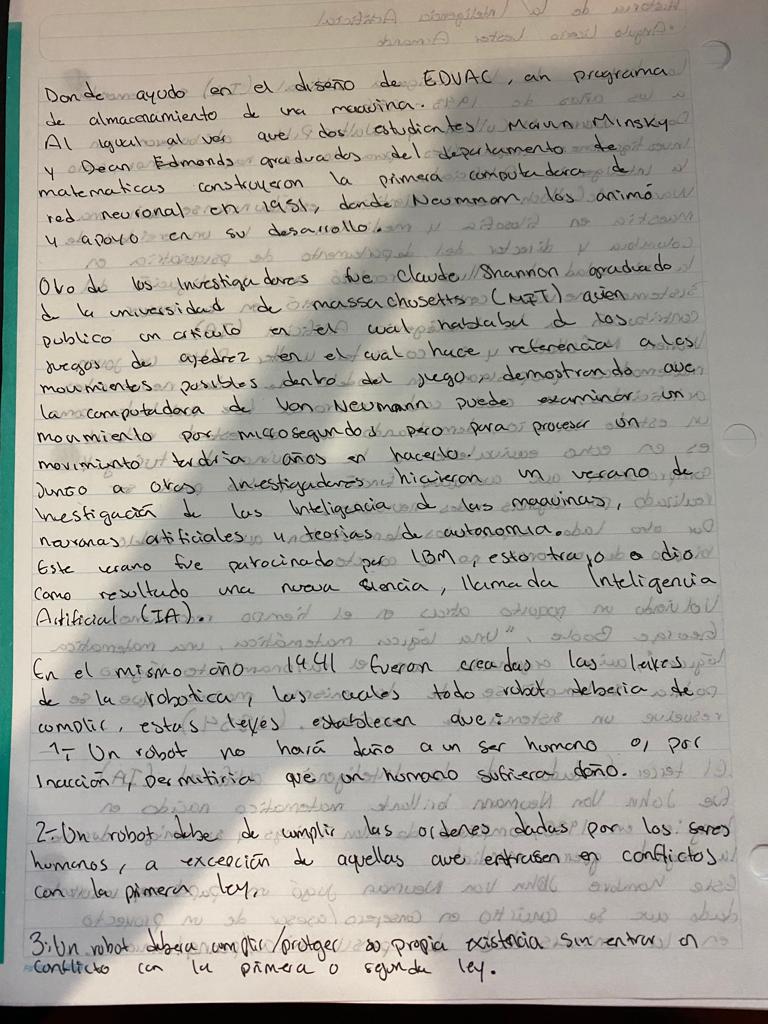 Donde ayudo en el diseño de EDVAC, un programa
de almacenamiento de una maquina.
Al igual al ver que dos estudiantes Marvin Minsky
y Dean Edmonds graduados del departamento de
matematicas construyeron la primera computadora de
red neuronal en 1951, donde Neumman los animó
y apoyo en su desarrollo.
Otro de los Investigadores fue Claude Shannon graduado
de la universidad de massachusetts (MIT) quien
publico un articulo en el cual hablaba d los
juegos de ajedrez en el cual hace referencia a los
movimientos posibles dentro del juego, demostrando que
la computadora de Von Neumann puede examinar un
movimiento por microsegundos pero para procesar un
movimiento tardaria años en hacerlo.
Junto a otros Investigadores hicieron un verano de
Investigación de las Inteligencia d las maquinas,
neuronas artificiales y teorias de autonomia.
Este verano fue patrocinado por IBM, esto trajo o dio
como resultado una nueva siencia, llamada Inteligencia
Artificial (IA).
En el mismo año 1941 fueron creadas las leyes
de la robotica, las cuales todo robot deberia de
complir, estas leyes establecen que:
1- Un robot no hará daño a un ser humano o, por
Inacción, permitiria que un humano sufriera daño.
2- Un robot debe de cumplir las ordenes dadas por los seres
humanos, a excepción de aquellas que entrasen en conflictos
con la primera ley.
3- Un robot debera cumplir/protger su propia existencia sin entrar en
conflicto con la primera o segunda ley.